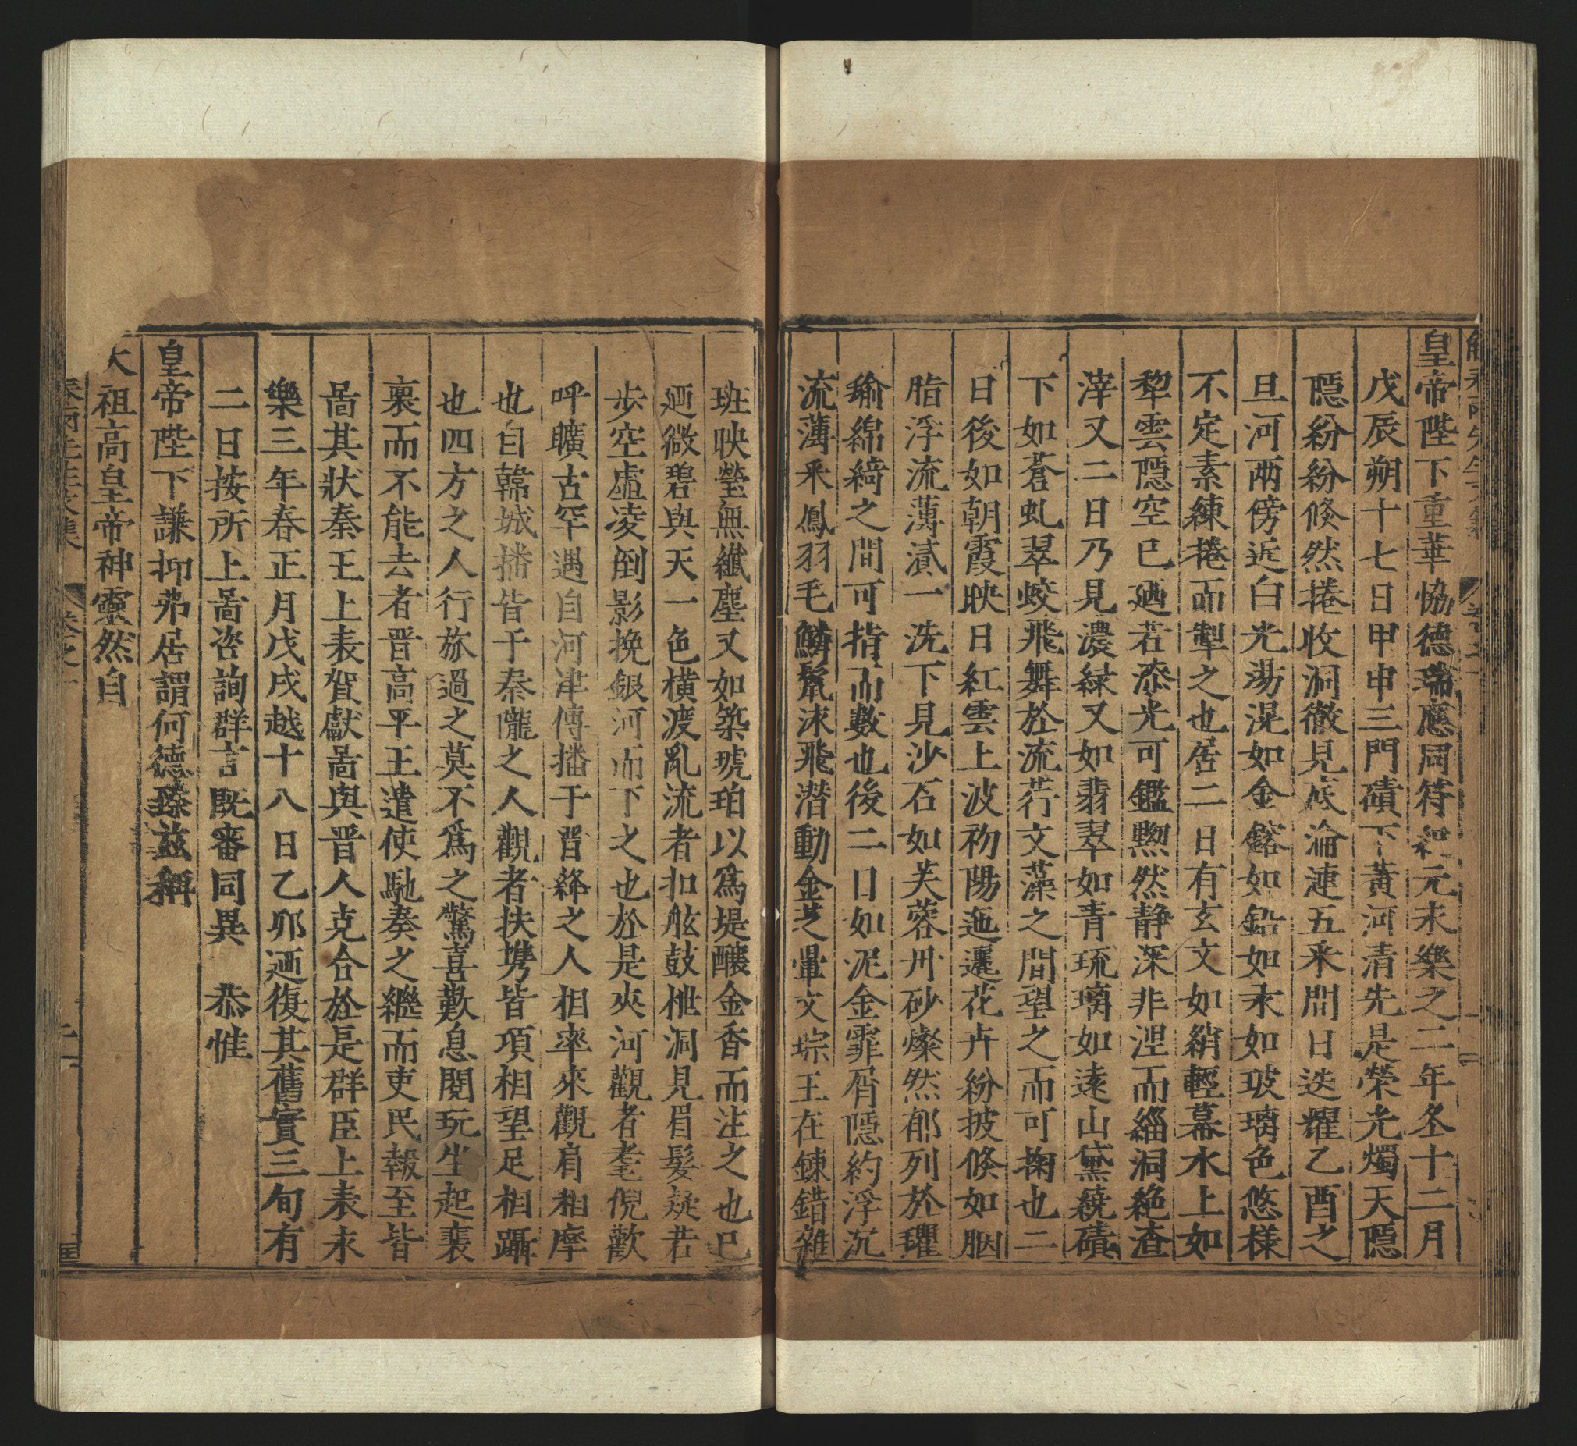 皇帝陛下重華恊德瑞應同符紀元永樂之二年冬十二月
戊辰朔十七日甲申三門磧下黃河清先是榮光燭天隱
隱紛紛倐然捲收洞徹見底淪漣五采間日迭耀乙酉之
旦河兩傍近白光湯滉如金鎔如鉛如汞如玻瓈色悠樣
不定素練捲而掣之也居二日有玄文如綃輕幕水上如
犂雲隱空已廼若漆光可鑑黝然静深非涅而緇洞絶查
滓又二日乃見濃緑又如翡翠如青琉璃如遠山黛繞磧
下如蒼虬翠蛟飛舞於流荇文藻之間望之而可掬也二
日後如朝霞映日紅雲上波初陽迤邐花卉紛披倐如胭
脂浮流薄濆一洗下見沙石如芙蓉丹砂燦然郁列於瓘
瑜綿綺之間可指而數也後二日如泥金霏屑隱約浮沉
流薄采鳳羽毛鱗鬣沫飛潜動金芝暈文琮王在鍊錯雜
班映瑩無纖塵又如染琥珀以為堤釀金香而注之也已
廼微碧與天一色橫渡亂流者扣舷鼓枻洞見眉髮疑若
步空虛凌倒影挽銀河而下之也於是夾河觀者耄倪歡
呼曠古罕遇自河津傳播于晋絳之人相率來觀肩相摩
也自韓城播皆于秦隴之人觀者扶擕皆項相望足相躡
也四方之人行旅過之莫不爲之驚喜歎息閱玩生起裹
裹而不能去者晋高平王遣使馳奏之繼而吏民報至皆
啚其狀秦王上表賀獻啚與晋人克合於是群臣上表永
樂三年春正月戊戌越十八日乙夘廼復其舊實三旬有
二日按所上啚咨詢群言既審同異　恭惟
皇帝陛下謙抑弗居謂何德臻茲稱
太祖高皇帝神靈然自